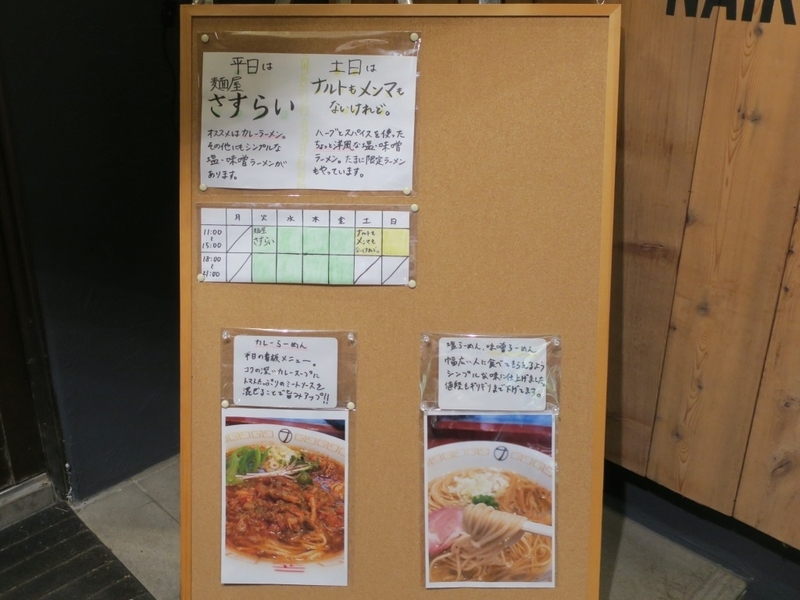 平日は
麺屋
さすらい
オススメはカレーラーメン。
その他にもシンプルな
塩・味噌ラーメンが
あります。
土日は
ナルトもメンマも
ないけれど。
ハーブとスパイスを使った
ちょっと洋風な塩・味噌
ラーメン。たまに限定ラーメン
もやっています。
月 火 水 木 金 土 日
11:00
~
15:00
麺屋
さすらい
ナルトも
メンマも
ないけれど。
18:00
~
21:00
カレーらーめん
平日の看板メニュー。
コクの深いカレースープに
トマトたっぷりのミートソースを
混ぜることで旨みアップ!!
塩らーめん、味噌らーめん
幅広い人に食べてもらえるよう
シンプルな味に仕上げました。
値段もギリギリまで下げてます。
NAIK